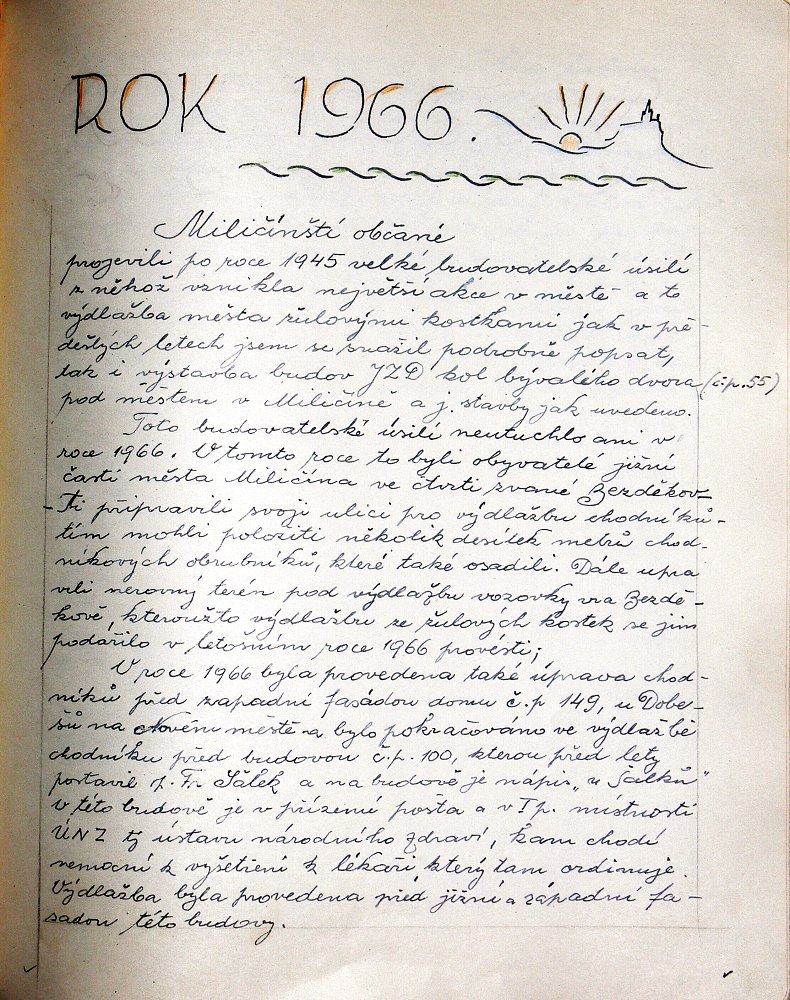 ROK 1966.
Miličínští občané
projevili po roce 1945 velké budovatelské úsilí
z něhož vznikla největší akce v městě - a to
výdlažba města žulovými kostkami jak v pře-
dešlých letech jsem se snažil podrobně popsat,
tak i výstavba budov JZD kol bývalého dvora (č.p. 55)
pod městem v Miličíně a j. stavby jak uvedeno.
Toto budovatelské úsilí neutuchlo ani v
roce 1966. V tomto roce to byli obyvatelé jižní
části města Miličína ve čtvrti zvané Bezděkov-
-Ti připravili svoji ulici pro výdlažbu chodníků-
tím mohli položiti několik desítek metrů chod-
níkových obrubníků, které také osadili. Dále upra
vili nerovný terén pod výdlažbu vozovky na Bezdě-
kově, kteroužto výdlažbu ze žulových kostek se jim
podařilo v letošním roce 1966 provésti;
V roce 1966 byla provedena také úprava chod-
níků před zapadní fasádou domu č.p 149, u Dobe-
šů na Novém městě - a bylo pokračováno ve výdlažbě
chodníku před budovou č.p. 100, kterou před lety
postavil p. Fr. Šálek a na budově je nápis „u Šálků"
V této budově je v přízemí pošta a v I p. mistnosti
ÚNZ tj ústavu národního zdraví, kam chodí
nemocní k vyšetření k lékaři, který tam ordinuje.
Výdlažba byla provedena před jižní a západní fa-
sadou této budovy.